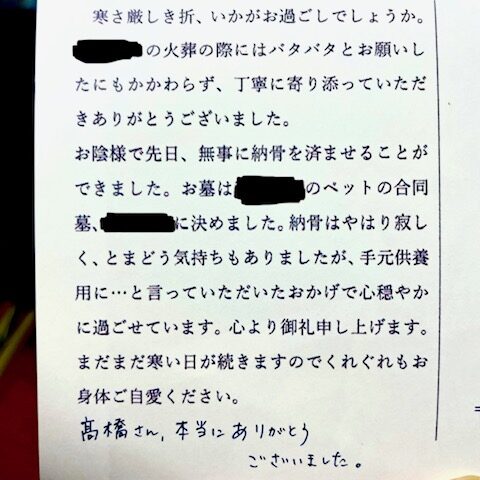 寒さ厳しき折、いかがお過ごしでしょうか。
の火葬の際にはバタバタとお願いし
たにもかかわらず、丁寧に寄り添っていただ
きありがとうございました。
お陰様で先日、無事に納骨を済ませること
ができました。お墓は のペットの合同
墓、 に決めました。納骨はやはり寂し
く、とまどう気持ちもありましたが、手元供養
用に…と言っていただいたおかげで心穏やか
に過ごせています。心より御礼申し上げます。
まだまだ寒い日が続きますのでくれぐれもお
身体ご自愛ください。
髙橋さん,本当にありがとう
ございました。